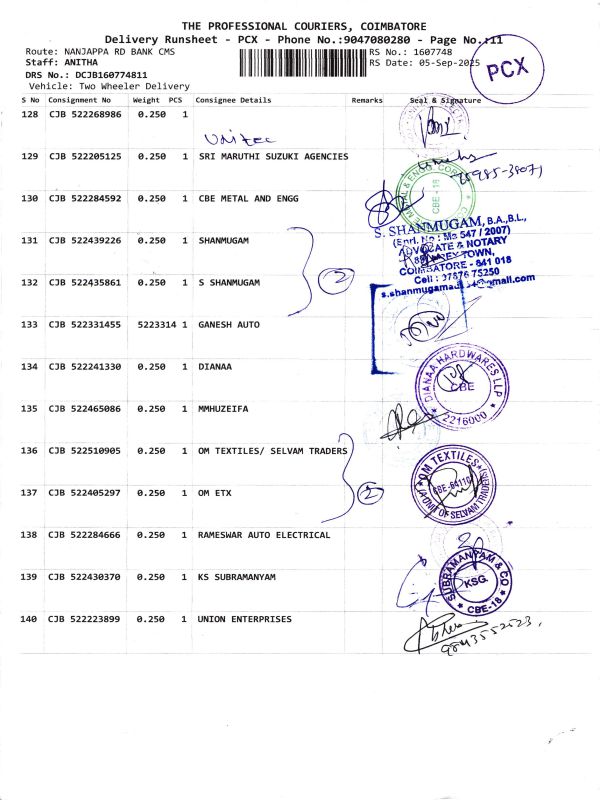 THE PROFESSIONAL COURIERS, COIMBATORE
Delivery Runsheet - PCX - Phone No.:9047080280 - Page No.:11
Route: NANJAPPA RD BANK CMS
RS No.: 1607748
Staff: ANITHA
RS Date: 05-Sep-2025
PCX
DRS No.: DCJB160774811
Vehicle: Two Wheeler Delivery
S No Consignment No Weight PCS Consignee Details Remarks Seal & Signature
128 CJB 522268986 0.250 1
129 CJB 522205125 0.250 1 SRI MARUTHI SUZUKI AGENCIES
130 CJB 522284592 0.250 1 CBE METAL AND ENGG
CBE - 18
131 CJB 522439226 0.250 1 SHANMUGAM
S. SHANMUGAM, B.A.,B.L.,
(Enrl. No : Ms 547 / 2007)
ADVOCATE & NOTARY
COIMBATORE - 641 018
Cell : 97876 75250
2
132 CJB 522435861 0.250 1 S SHANMUGAM
133 CJB 522331455 5223314 1 GANESH AUTO
134 CJB 522241330 0.250 1 DIANAA
DIANAA HARDWARES LLP
CBE
2216000
135 CJB 522465086 0.250 1 MMHUZEIFA
136 CJB 522510905 0.250 1 OM TEXTILES/ SELVAM TRADERS
OM TEXTILES
(A UNIT OF SELVAM TRADERS)
137 CJB 522405297 0.250 1 OM ETX
2
138 CJB 522284666 0.250 1 RAMESWAR AUTO ELECTRICAL
139 CJB 522430370 0.250 1 KS SUBRAMANYAM
SUBRAMANYAM & CO
KSG.
CBE-18
140 CJB 522223899 0.250 1 UNION ENTERPRISES